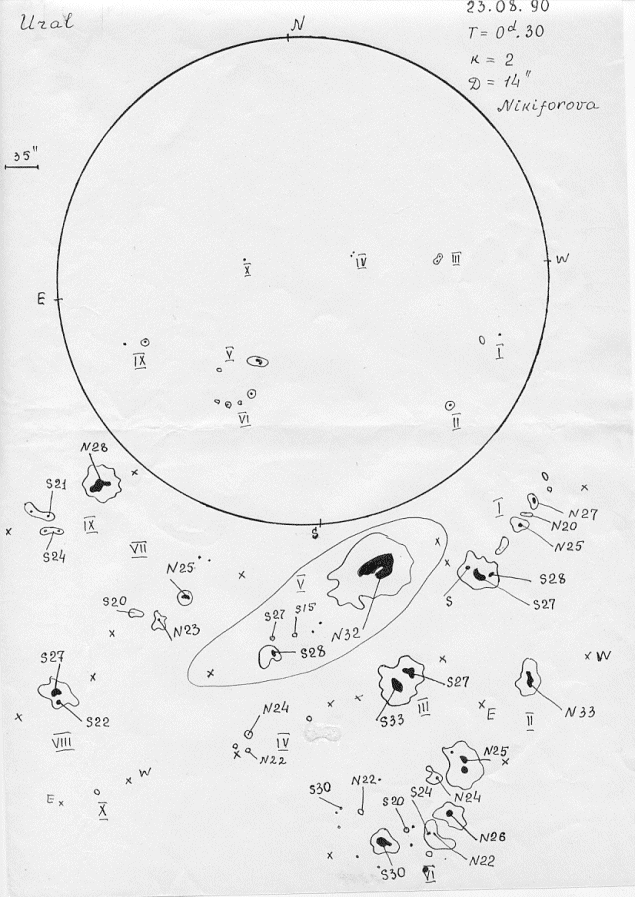 Ural
N
23.08.90
T = 0ᵈ.30
K = 2
D = 14"
Nikiforova
35"
E
W
X
IV
III
IX
V
I
VI
II
S
N28
S21
IX
S24
VII
N25
S20
N23
I
N27
N20
N25
V
S27
S15
N32
S28
S
S28
S27
S27
S22
VIII
S27
S33
III
W
E
II
N33
N24
IV
N22
E
X
W
N25
N24
S30
N22
S20
S24
N26
N22
S30
VI